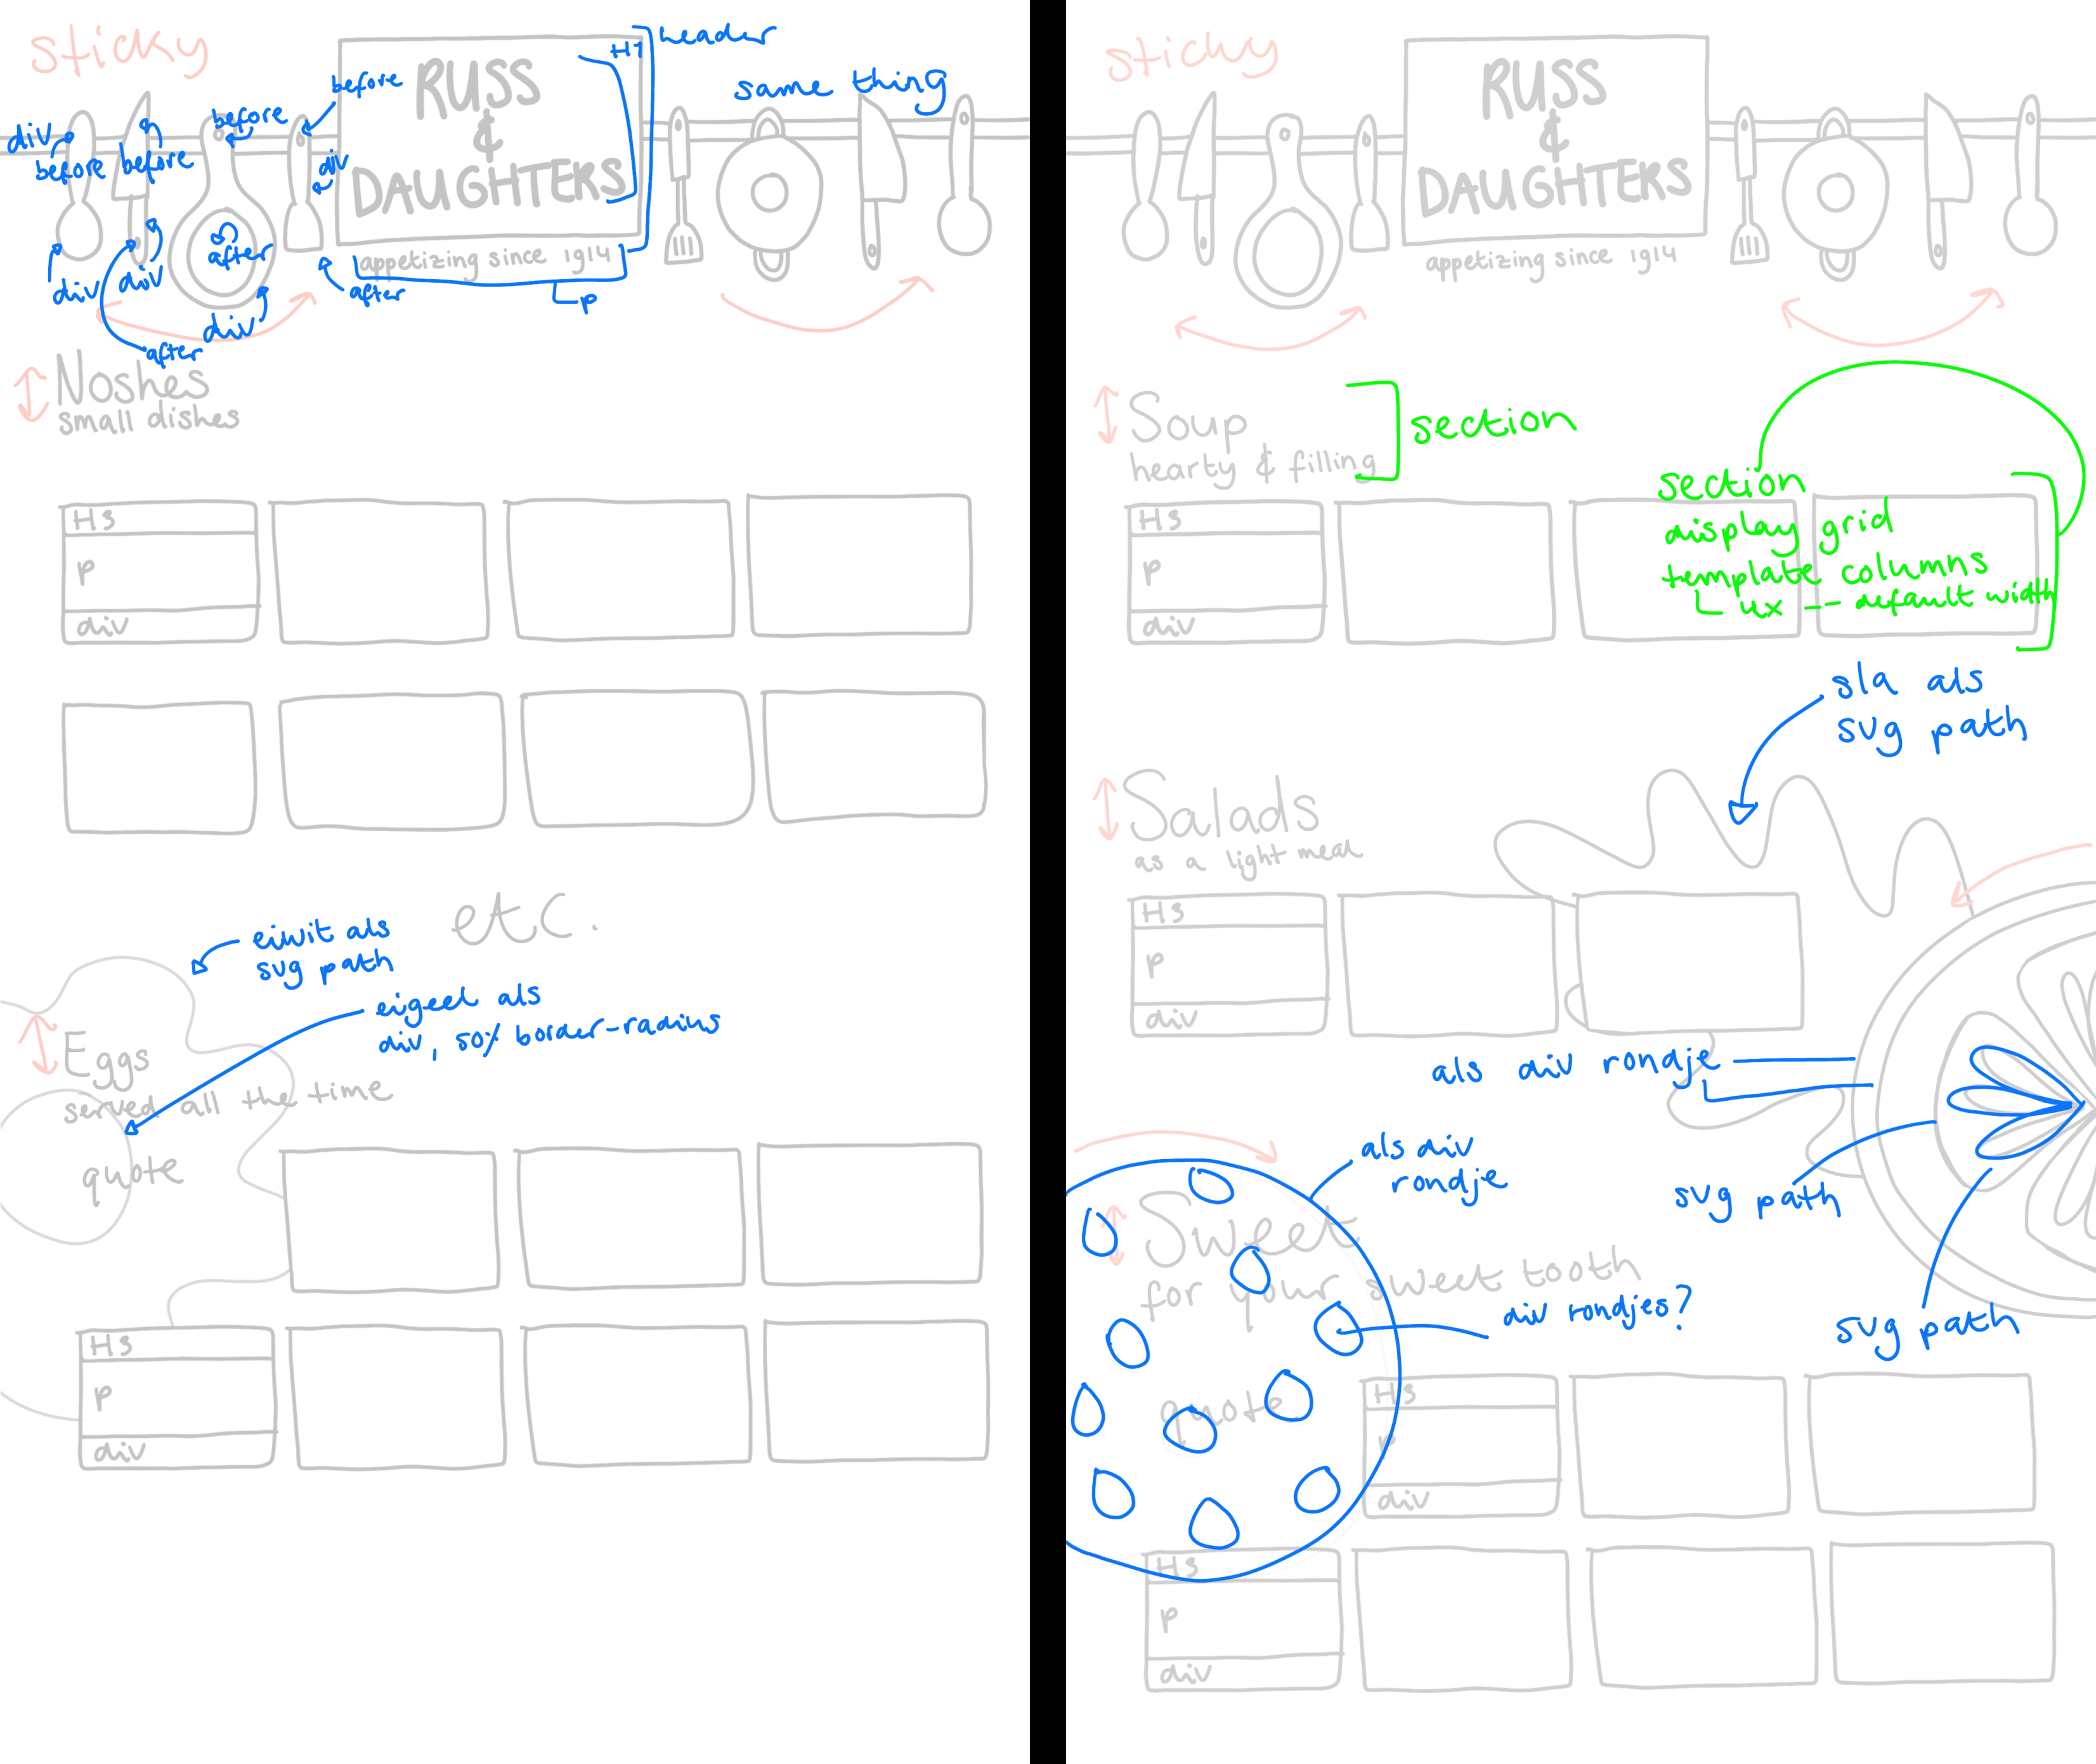 sticky
header
H1
RUSS
&
DAUGHTERS
same thing
before
before
div
before
before
div
after
div
div
div
after
after
appetizing since 1914
p
Noshes
small dishes
H3
p
div
etc.
eiwit als
svg path
eigeel als
div, 50% border-radius
Eggs
served all the time
quote
H3
p
div
sticky
RUSS
&
DAUGHTERS
appetizing since 1914
Soup
hearty & filling
section
H3
p
div
section
display grid
template columns
4x -- default width
sla als
svg path
Salads
as a light meal
H3
p
div
als div rondje
svg path
svg path
als div
rondje
Sweet
for your sweet tooth
div rondjes?
quote
H3
p
div
H3
p
div